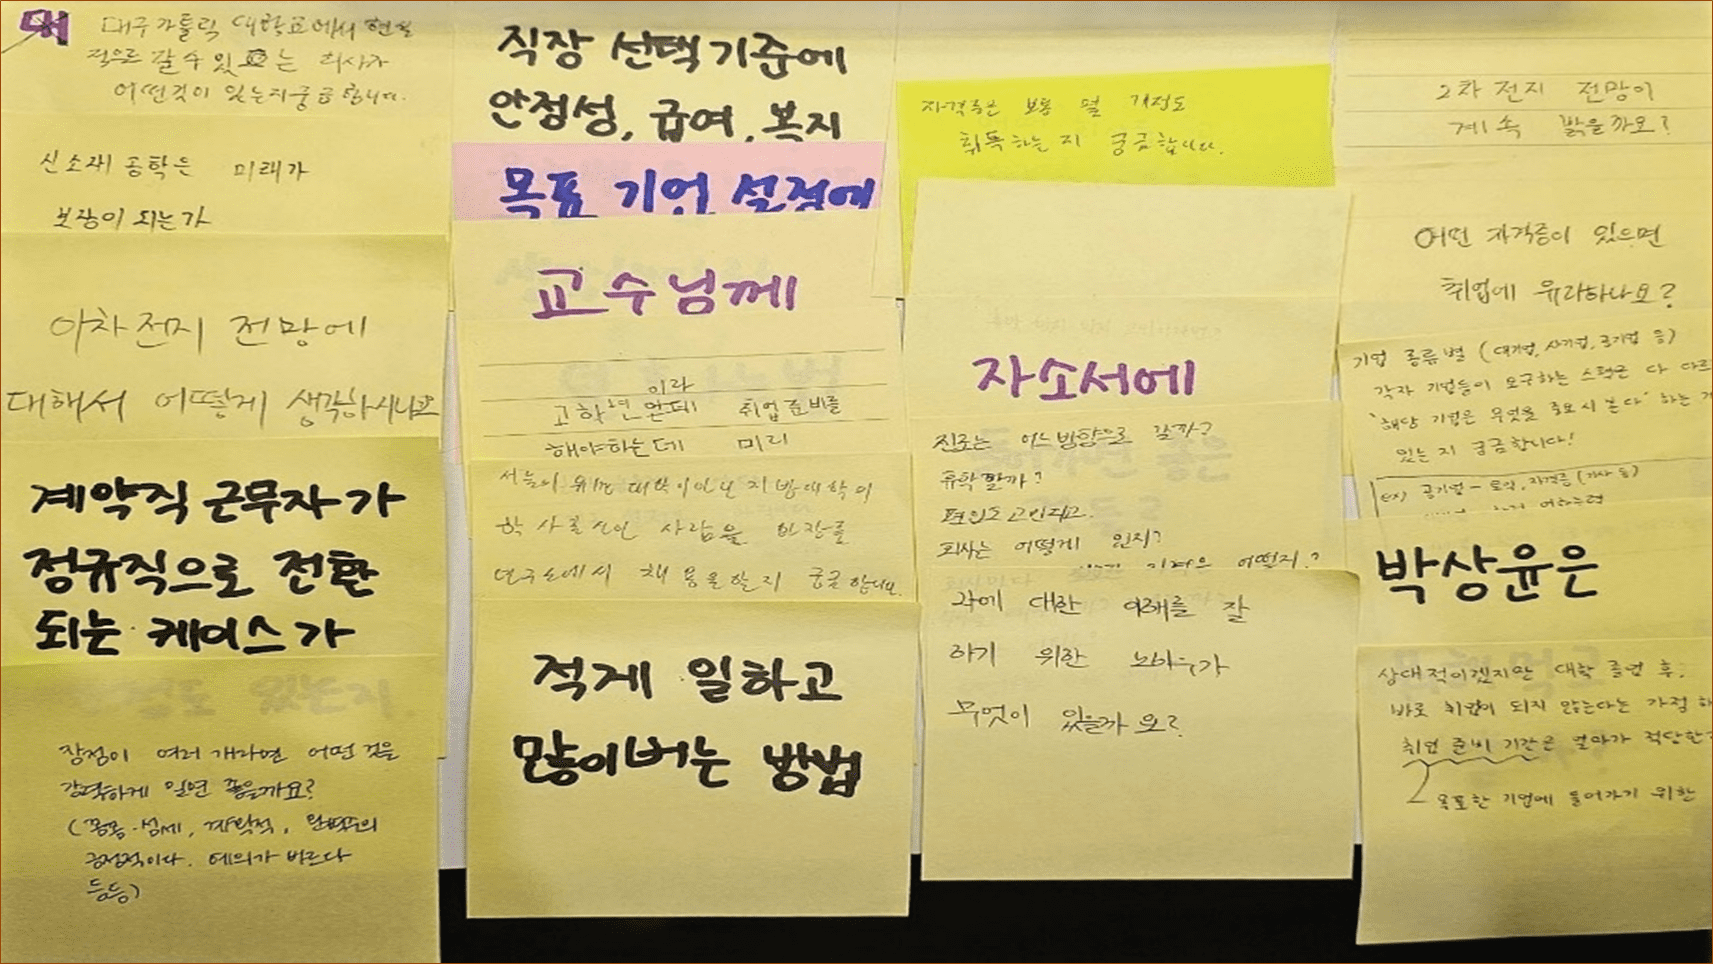 대구가톨릭 대학교에서 현실
적으로 갈 수 있는 회사가
어떤것이 있는지 궁금합니다.
신소재 공학은 미래가
보장이 되는가
이차전지 전망에
대해서 어떻게 생각하시나요
계약직 근무자가
정규직으로 전환
되는 케이스가
장점이 여러 개라면 어떤 것을
강력하게 밀면 좋을까요?
(꼼꼼·섬세, 계획적,
긍정적이다. 예의가 바르다
등등)
직장 선택 기준에
안정성, 급여, 복지
목표 기업 설정에
교수님께
이라
고학년인데 취업준비를
해야하는데 미리
대학이 아닌 지방대학의
학사출신인 사람을
연구소에서 채용을 할지 궁금합니다.
적게 일하고
많이버는 방법
자격증은 보통 몇 개정도
취득하는 지 궁금합니다.
자소서에
진로는 어느방향으로 갈까?
유학할까?
편입도 고민되고.
회사는 어떻게 인지?
어떤지?
과에 대한 이해를 잘
하기 위한 노하우가
무엇이 있을까요?
2차 전지 전망이
계속 밝을까요?
어떤 자격증이 있으면
취업에 유리하나요?
기업 종류별 (대기업, 사기업, 공기업 등)
각자 기업들이 요구하는 스펙은 다 다르
'해당 기업은 무엇을 중요시 본다' 하는 게
있는지 궁금합니다!
ex) 공기업 - 토익, 자격증 (기사 등)
박상윤은
상대적이겠지만 대학 졸업 후,
바로 취업이 되지 않는다는 가정 하
취업 준비 기간은 얼마가 적당한
목표한 기업에 들어가기 위한